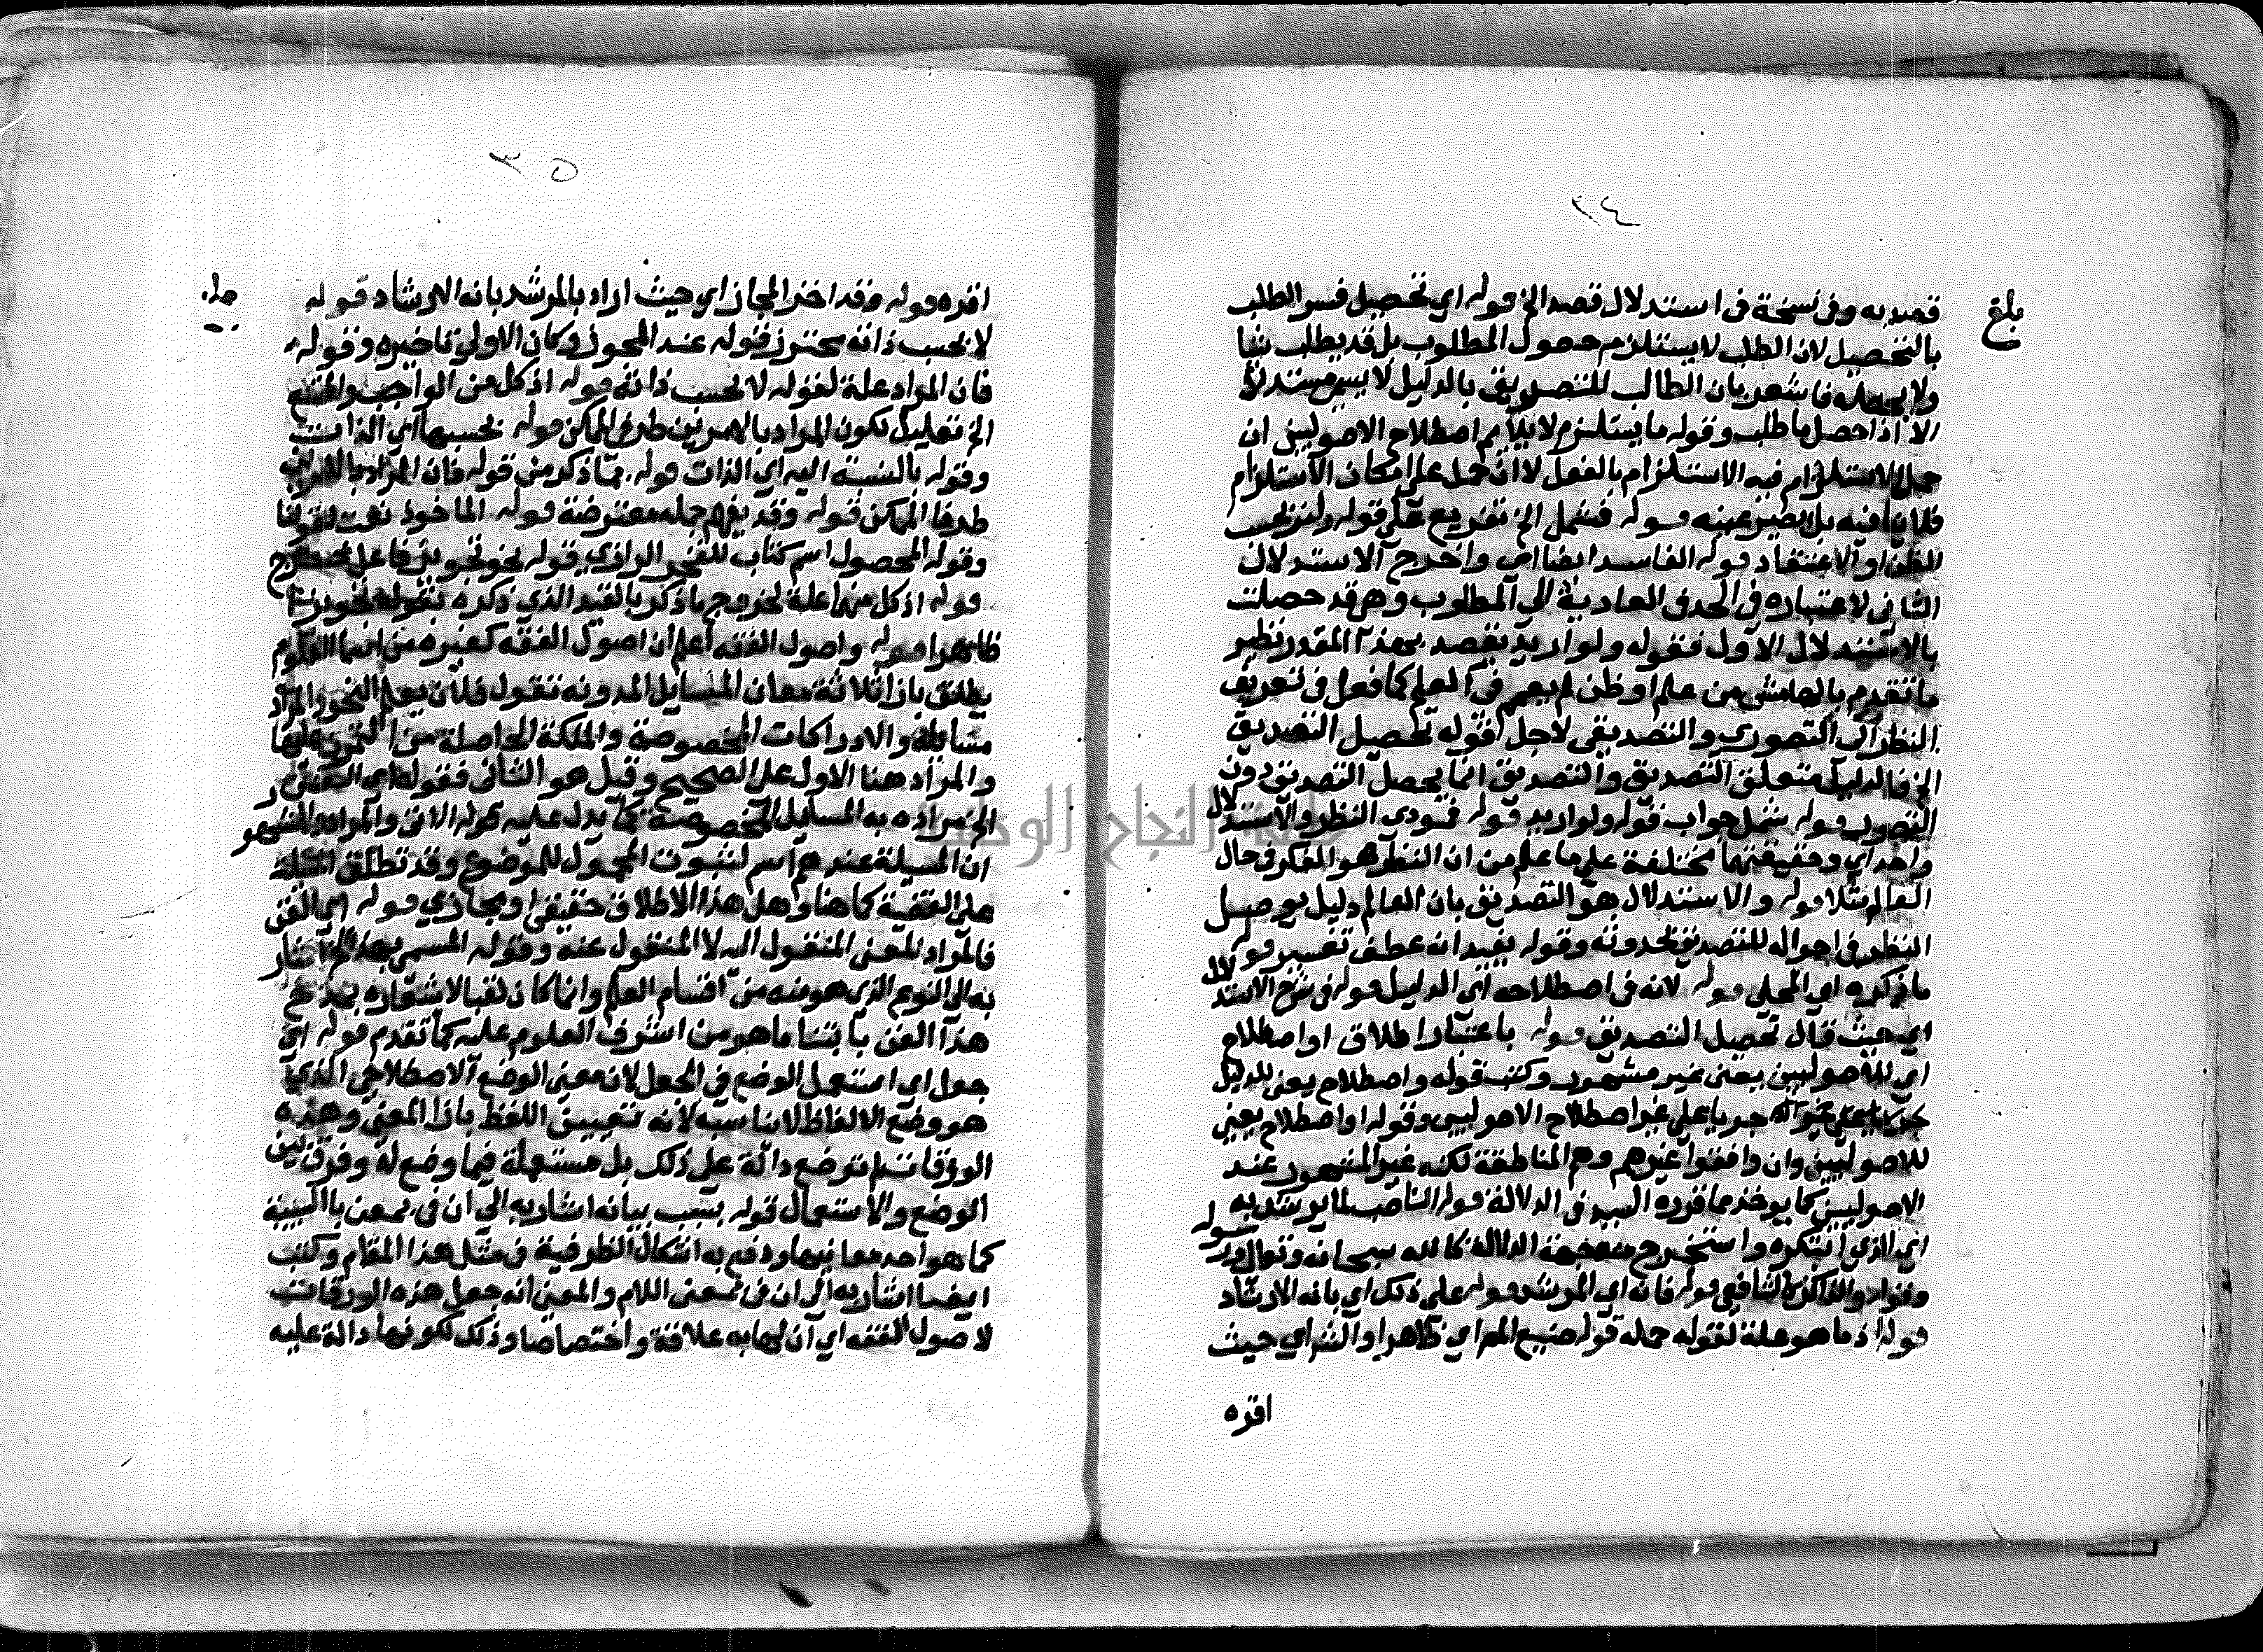 ٣٤
بلغ
قصد به وفي نسخة في استدلال قصد الخ قوله اي تحصيل فسر الطلب
بالتحصيل لان الطلب لا يستلزم حصول المطلوب بل قد يطلب شيا
ولا يحصله فاشعر بان الطالب للتصديق بالدليل لا يسمى مستدلا
الا اذا حصل ما طلب وقوله ما يستلزم لا يلايم اصطلاح الاصوليين ان
حمل الاستلزام فيه الاستلزام بالفعل لا ان حمل على امكان الاستلزام
فلا ينافيه بل يصير عينه قوله فشمل الخ تفريع على قوله ولو بحسب
الظن او الاعتقاد قوله الفاسد ايضا اي واخرج الاستدلال
الثاني لاعتباره في الحد في العادية الى المطلوب وهو قد حصلت
بالاستدلال الاول فقوله ولو اريد بقصد بهذا المقدر نظير
ما تقدم بالهامش من علم او ظن لم يعم في العلم كما فعل في تعريف
النظر الى التصوري والتصديقي لاجل قوله تحصيل التصديق
الخ فالدليل متعلق التصديق والتصديق انما يحصل التصديق دون
التصور قوله شمل جواب قوله ولو اريد قوله فمودى النظر والاستدلال
واحد اي وحقيقتهما مختلفة على ما علم من ان النظر هو الفكر في حال
العالم مثلا قوله والاستدلال هو التصديق بان العالم دليل يوصل
النظر في احواله للتصديق بحدوثه وقوله يفيد انه عطف تفسير قوله
ما ذكره اي المحلي قوله لانه في اصطلاحه اي الدليل قوله في شرح الاستدلال
اي حيث قال تحصيل التصديق قوله باعتبار اطلاق او اصطلاح
اي للاصوليين يعني غير مشهور وكتب قوله واصطلاح يعني للدليل
جريا على غير اصطلاح الاصوليين وقوله او اصطلاح يعني
للاصوليين وان وافقوا غيرهم وهم المناطقة لكنه غير المشهور عند
الاصوليين كما يوخذ مما قرره السيد في الدلالة قوله الناصب لما يرشد به
اي الذي ابتكره واستخرج الدلالة كالله سبحانه وتعالى ورسوله
وقوله والذاكر كالشافعي قوله فانه اي المرشد قوله على ذلك اي بانه الارشاد
قوله اذ ما هو علة لقوله حمله قوله صنيع المص اي ظاهرا والش اي حيث
اقره
٣٥
اقره قوله وقد اختر المجاز اي حيث اراد بالمرشد بانه الارشاد قوله
لا بحسب ذاته محترز قوله عند المجوز وكان الاولى تاخيره وقوله
فان المراد علة لقوله لا بحسب ذاته قوله اذ كل من الواجب والممتنع
الخ تعليل لكون المراد بالامرين طرفي الممكن قوله بحسبها اي الذات
وقوله بالنسبة اليه اي الذات قوله مما ذكر من قوله فان المراد بالامرين
طرفا الممكن قوله وقد يفهم جملة معترضة قوله الماخوذ نعت لقولنا
وقوله المحصول اسم كتاب للفخر الرازي قوله نحو تجويز فاعل مخرج
قوله اذ كل منهما علة لخروج ما ذكر بالقيد الذي ذكره بقوله تجويزنا
ظاهرا قوله واصول الفقه اعلم ان اصول الفقه كغيره من اسما العلوم
يطلق بازا ثلاثة معان المسايل المدونة تقول فلان يعلم النحو والمراد
مسايله والادراكات المخصوصة والملكة الحاصلة من التمرن عليها
والمراد هنا الاول على الصحيح وقيل هو الثاني فقوله اي الفقهي
الخ مراده به المسايل المخصوصة كما يدل عليه قوله الاتي والمراد والمشهور
ان المسيلة عندهم اسم لثبوت المحمول للموضوع وقد تطلق المسيلة
على القضية كما هنا وهل هذا الاطلاق حقيقي او مجازي قوله اي الفن
فالمراد المعنى المنقول اليه لا المنقول عنه وقوله المسمى بهذا اشار
به الى النوع الذي هو منه من اقسام العلم وانما كان لقبا لاشعاره بمدح
هذا الفن بابتنا ما هو من اشرف العلوم عليه كما تقدم قوله اي
جعل اي استعمل الوضع في الجعل لان معنى الوضع الاصطلاحي الذي
هو وضع الالفاظ لا يناسبه لانه تعيين اللفظ بازا المعنى وهذه
الورقات لم توضع دالة على ذلك بل مستعملة فيما وضع له وفرق بين
الوضع والاستعمال قوله بسبب بيانه اشار به الى ان في بمعنى با السببية
كما هو احد معانيها ودفع به اشكال الظرفية في مثل هذا المقام وكتب
ايضا اشار به الى ان في بمعنى اللام والمعنى انه جعل هذه الورقات
لاصول الفقه اي ان لها به علاقة واختصاصا وذلك لكونها دالة عليه